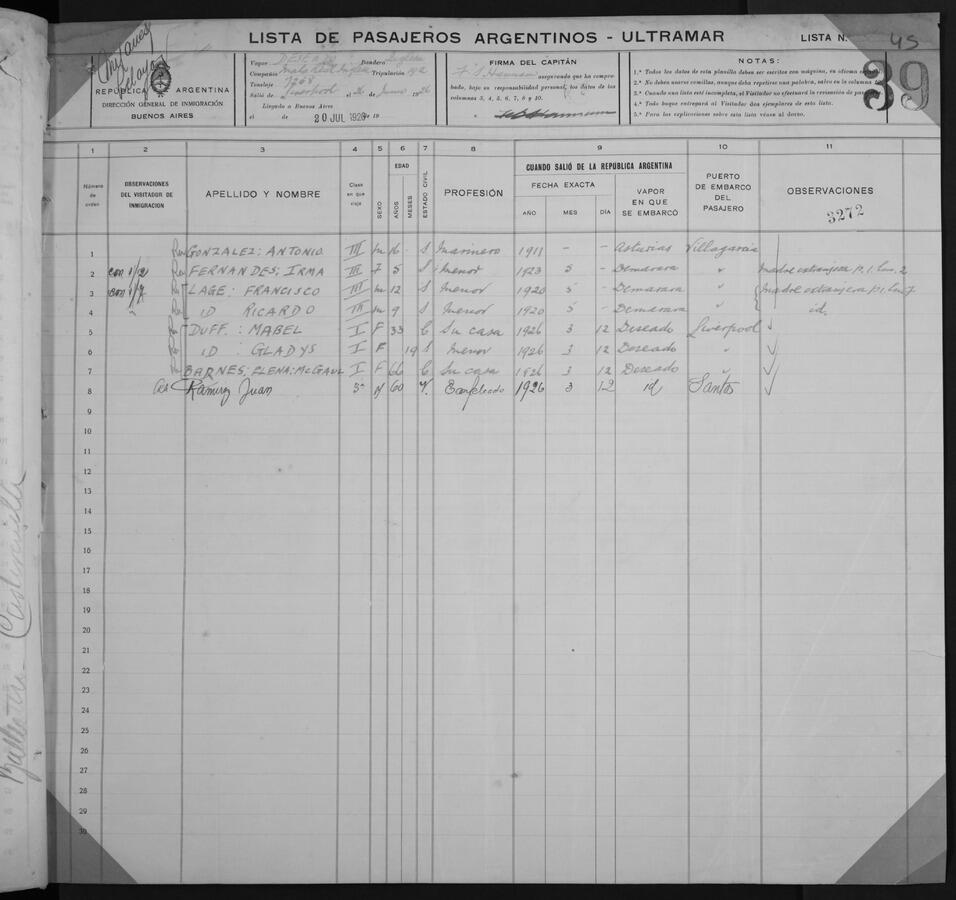 LISTA DE PASAJEROS ARGENTINOS - ULTRAMAR
LISTA N.
45
39
REPUBLICA ARGENTINA
DIRECCIÓN GENERAL DE INMIGRACIÓN
BUENOS AIRES
Vapor DESEADO Bandera Inglesa
Compañia Mala Real Inglesa Tripulación
Tonelaje
Salió de Liverpool el 26 de Junio 1926
Llegado a Buenos Aires
el de 20 JUL 1926 19
FIRMA DEL CAPITÁN
asegurando que ha comprobado, bajo su responsabilidad personal, los datos de las columnas 3, 4, 5, 6, 7, 8, 9 y 10.
NOTAS:
1.ª Todos los datos de esta planilla deben ser escritos con máquina, en idioma
2.ª No deben usarse comillas, aunque deba repetirse una palabra, salvo en la columna
3.ª Cuando una lista esté incompleta, el Visitador no efectuará la revisación de
4.ª Todo buque entregará al Visitador dos ejemplares de esta lista.
5.ª Para las explicaciones sobre esta lista véase al dorso.
1 2 3 4 5 6 7 8 9 10 11
Número de orden
OBSERVACIONES DEL VISITADOR DE INMIGRACION
APELLIDO Y NOMBRE
Clase en que viaja
SEXO
EDAD
AÑOS
MESES
ESTADO CIVIL
PROFESIÓN
CUANDO SALIÓ DE LA REPUBLICA ARGENTINA
FECHA EXACTA
AÑO MES DIA
VAPOR EN QUE SE EMBARCÓ
PUERTO DE EMBARCO DEL PASAJERO
OBSERVACIONES
3272
1 GONZALEZ: ANTONIO III m 16 - S Marinero 1911 - - Asturias Villagarcia
2 FERNANDES; IRMA III F 5 S Menor 1923 5 - Demarara " Madre extranjera p. 1. Lin. 2
3 LAGE: FRANCISCO III m 12 S Menor 1920 5 - Demarara " Madre extranjera p1 Lin 7
4 ID RICARDO III m 9 S Menor 1920 5 - Demarara " id.
5 DUFF: MABEL I F 33 C Su casa 1926 3 12 Deseado Liverpool
6 ID: GLADYS I F 19 S Menor 1926 3 12 Deseado "
7 BARNES; ELENA; McGAUL I F 66 C Su casa 1926 3 12 Deseado
8 Ramirez Juan 3ª 60 V. Empleado 1926 3 12 id Santos
9
10
11
12
13
14
15
16
17
18
19
20
21
22
23
24
25
26
27
28
29
30